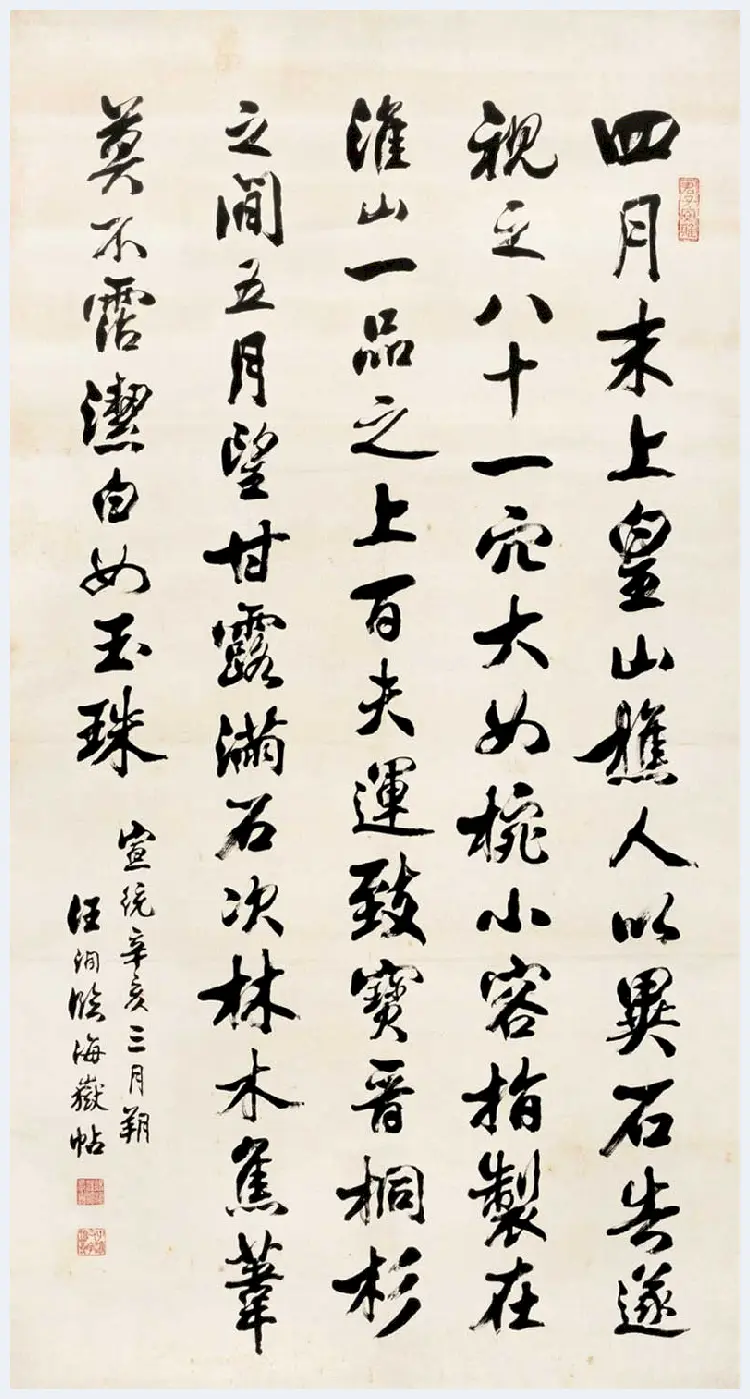 四月末上皇山樵人以異石告遂
視之八十一穴大如椀小容指製在
淮山一品之上百夫運致寶晉桐杉
之間五月望甘露滿石次林木蕉葦
莫不霑潔白如玉珠
宣統辛亥三月朔
汪洵臨海嶽帖